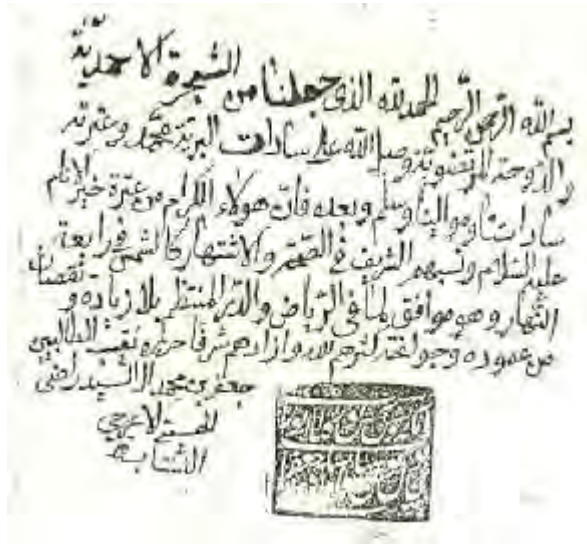 بسم الله الرحمن الرحيم الحمد لله الذي جعلنا من الشجرة الاحمدية
والدوحة المرتضوية وصلى الله على سادات البرية محمد وعترته
ساداتنا وموالينا وسلم وبعد فان هولاء الكرام من عترة خير الانام
عليه السلام ونسبهم الشريف في الصحة والاشتهار كالشمس في رابعة
النهار وهو موافق لما في الرياض والدر المنتظم بلا زياده و نقصان
من عموده وجواغده شرفا حرره نقيب الطالبيين
جعفر بن محمد السيد راضي
الحسيني الاعرجي
النسابه